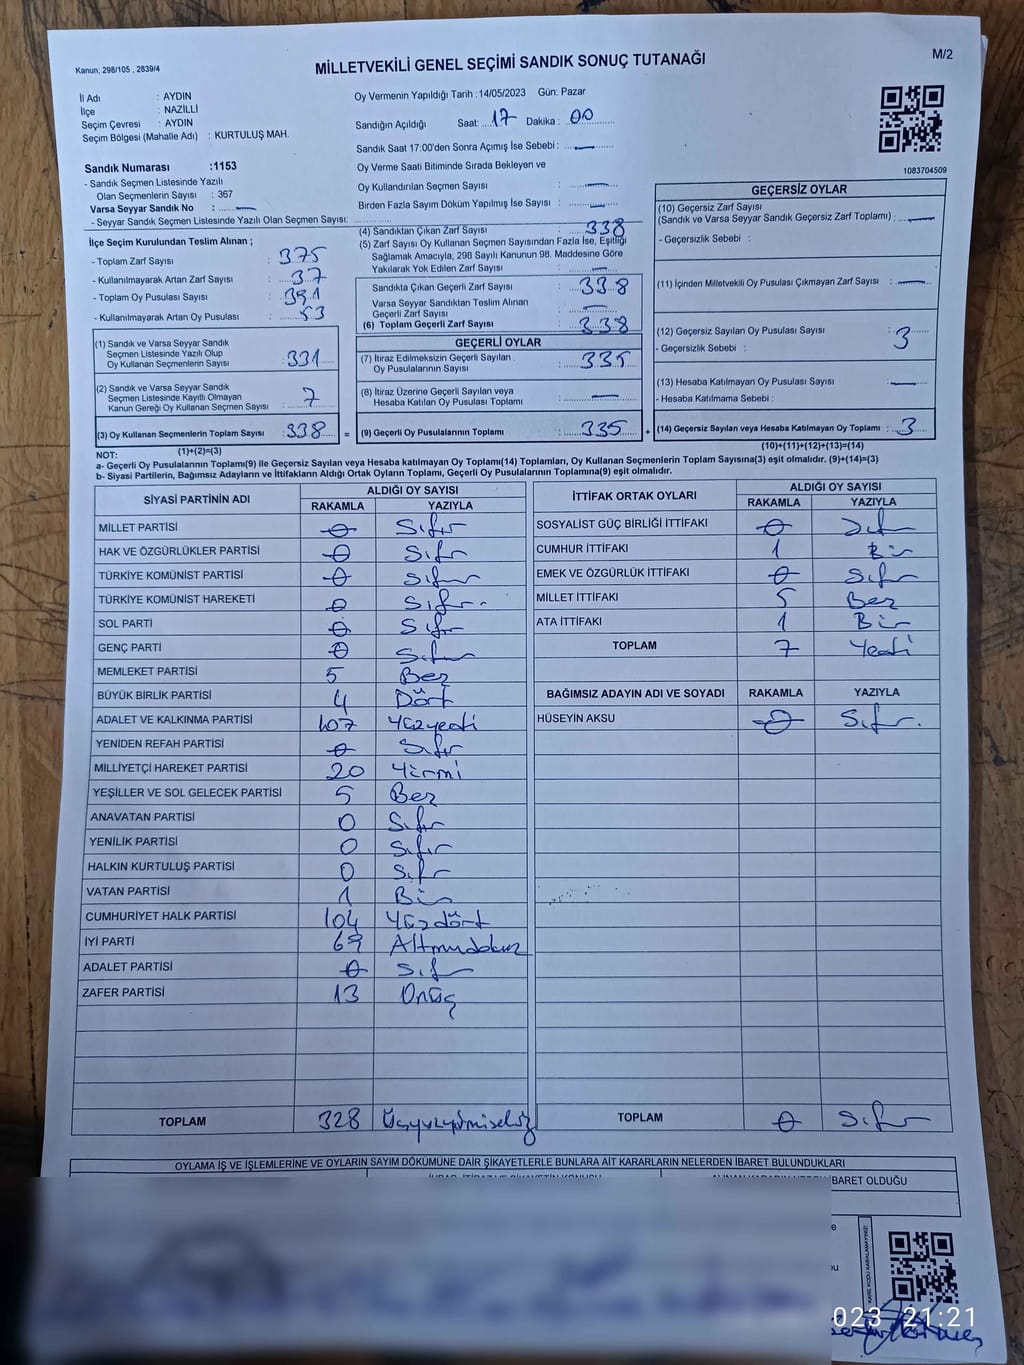 Kanun; 298/105 , 2839/4
MİLLETVEKİLİ GENEL SEÇİMİ SANDIK SONUÇ TUTANAĞI
M/2
İl Adı : AYDIN
İlçe : NAZİLLİ
Seçim Çevresi : AYDIN
Seçim Bölgesi (Mahalle Adı) : KURTULUŞ MAH.
Sandık Numarası :1153
- Sandık Seçmen Listesinde Yazılı
Olan Seçmenlerin Sayısı : 367
Varsa Seyyar Sandık No : —
- Seyyar Sandık Seçmen Listesinde Yazılı Olan Seçmen Sayısı:
Oy Vermenin Yapıldığı Tarih :14/05/2023 Gün: Pazar
Sandığın Açıldığı Saat: 17 Dakika : 00
Sandık Saat 17:00'den Sonra Açımış İse Sebebi : —
Oy Verme Saati Bitiminde Sırada Bekleyen ve
Oy Kullandırılan Seçmen Sayısı : —
Birden Fazla Sayım Döküm Yapılmış İse Sayısı : —
1083704509
İlçe Seçim Kurulundan Teslim Alınan ;
- Toplam Zarf Sayısı : 375
- Kullanılmayarak Artan Zarf Sayısı : 37
- Toplam Oy Pusulası Sayısı : 391
- Kullanılmayarak Artan Oy Pusulası : 53
(1) Sandık ve Varsa Seyyar Sandık
Seçmen Listesinde Yazılı Olup
Oy Kullanan Seçmenlerin Sayısı : 331
(2) Sandık ve Varsa Seyyar Sandık
Seçmen Listesinde Kayıtlı Olmayan
Kanun Gereği Oy Kullanan Seçmen Sayısı : 7
(3) Oy Kullanan Seçmenlerin Toplam Sayısı : 338 =
(1)+(2)=(3)
(4) Sandıktan Çıkan Zarf Sayısı : 338
(5) Zarf Sayısı Oy Kullanan Seçmen Sayısından Fazla İse, Eşitliği
Sağlamak Amacıyla, 298 Sayılı Kanunun 98. Maddesine Göre
Yakılarak Yok Edilen Zarf Sayısı : —
Sandıkta Çıkan Geçerli Zarf Sayısı : 338
Varsa Seyyar Sandıktan Teslim Alınan
Geçerli Zarf Sayısı : —
(6) Toplam Geçerli Zarf Sayısı : 338
GEÇERLİ OYLAR
(7) İtiraz Edilmeksizin Geçerli Sayılan
Oy Pusulalarının Sayısı : 335
(8) İtiraz Üzerine Geçerli Sayılan veya
Hesaba Katılan Oy Pusulası Toplamı : —
(9) Geçerli Oy Pusulalarının Toplamı : 335 +
GEÇERSİZ OYLAR
(10) Geçersiz Zarf Sayısı
(Sandık ve Varsa Seyyar Sandık Geçersiz Zarf Toplamı) : —
- Geçersizlik Sebebi :
(11) İçinden Milletvekili Oy Pusulası Çıkmayan Zarf Sayısı : —
(12) Geçersiz Sayılan Oy Pusulası Sayısı : 3
- Geçersizlik Sebebi :
(13) Hesaba Katılmayan Oy Pusulası Sayısı : —
- Hesaba Katılmama Sebebi :
(14) Geçersiz Sayılan veya Hesaba Katılmayan Oy Toplamı : 3
(10)+(11)+(12)+(13)=(14)
NOT:
a- Geçerli Oy Pusulalarının Toplamı(9) ile Geçersiz Sayılan veya Hesaba katılmayan Oy Toplamı(14) Toplamları, Oy Kullanan Seçmenlerin Toplam Sayısına(3) eşit olmalıdır. (9)+(14)=(3)
b- Siyasi Partilerin, Bağımsız Adayların ve İttifakların Aldığı Ortak Oyların Toplamı, Geçerli Oy Pusulalarının Toplamına(9) eşit olmalıdır.
SİYASİ PARTİNİN ADI ALDIĞI OY SAYISI
RAKAMLA YAZIYLA
MİLLET PARTİSİ 0 Sıfır
HAK VE ÖZGÜRLÜKLER PARTİSİ 0 Sıfır
TÜRKİYE KOMÜNİST PARTİSİ 0 Sıfır
TÜRKİYE KOMÜNİST HAREKETİ 0 Sıfır.
SOL PARTİ 0 Sıfır
GENÇ PARTİ 0 Sıfır
MEMLEKET PARTİSİ 5 Beş
BÜYÜK BİRLİK PARTİSİ 4 Dört
ADALET VE KALKINMA PARTİSİ 107 Yüzyedi
YENİDEN REFAH PARTİSİ 0 Sıfır
MİLLİYETÇİ HAREKET PARTİSİ 20 Yirmi
YEŞİLLER VE SOL GELECEK PARTİSİ 5 Beş
ANAVATAN PARTİSİ 0 Sıfır
YENİLİK PARTİSİ 0 Sıfır
HALKIN KURTULUŞ PARTİSİ 0 Sıfır
VATAN PARTİSİ 1 Bir
CUMHURİYET HALK PARTİSİ 104 Yüzdört
İYİ PARTİ 69 Altmışdokuz
ADALET PARTİSİ 0 Sıfır
ZAFER PARTİSİ 13 Onüç
TOPLAM 328 Üçyüzyirmisekiz
İTTİFAK ORTAK OYLARI ALDIĞI OY SAYISI
RAKAMLA YAZIYLA
SOSYALİST GÜÇ BİRLİĞİ İTTİFAKI 0 Sıfır
CUMHUR İTTİFAKI 1 Bir
EMEK VE ÖZGÜRLÜK İTTİFAKI 0 Sıfır
MİLLET İTTİFAKI 5 Beş
ATA İTTİFAKI 1 Bir
TOPLAM 7 Yedi
BAĞIMSIZ ADAYIN ADI VE SOYADI RAKAMLA YAZIYLA
HÜSEYİN AKSU 0 Sıfır.
TOPLAM 0 Sıfır
OYLAMA İŞ VE İŞLEMLERİNE VE OYLARIN SAYIM DÖKÜMÜNE DAİR ŞİKAYETLERLE BUNLARA AİT KARARLARIN NELERDEN İBARET BULUNDUKLARI
İBARET OLDUĞU
KARE KODU KARALAMAYINIZ!
023 21:21